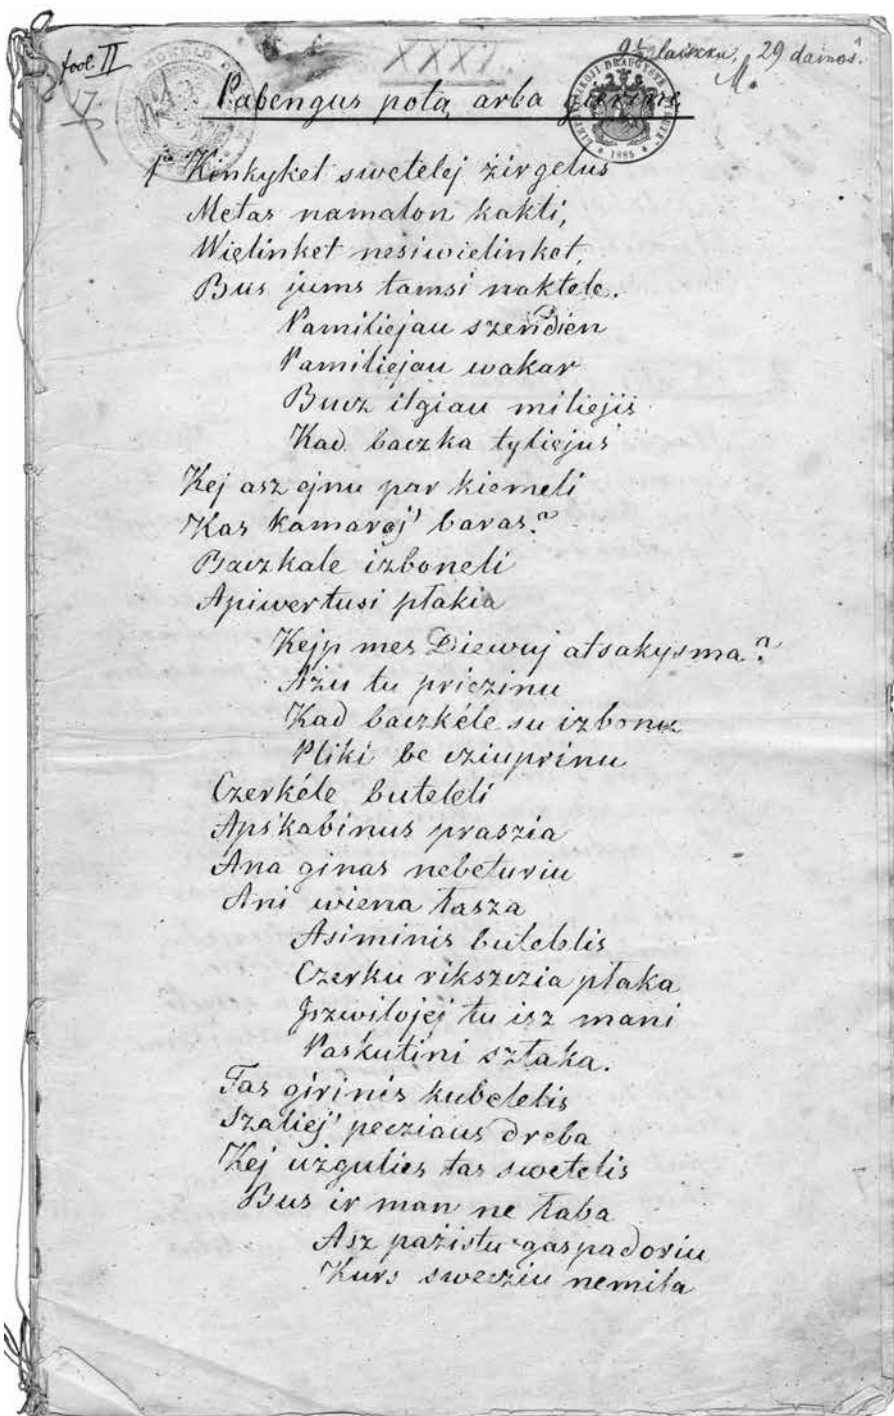 fool. II
XXXI
9 laiszku, 29 dainos.
17.
M.
Pabengus potą arba
1o Kinkyket swetelej żirgelus
Metas namalon kakti,
Wielinket nesiwielinket,
Bus jums tamsi naktele.
Pamiliejau szendien
Pamiliejau wakar
Bucz ilgiau miliejis
Kad baczka tyliejus
Kej asz ejnu par kiemeli
Kas kamaroj' baras?
Baczkale izboneli
Apiwertusi płakia
Kejp mes Diewuj atsakysma?
Ażu tu priczinu
Kad baczkéle su izbonu
Pliki be cziuprinu
Czerkéle buteleli
Apskabinus praszia
Ana ginas nebeturiu
Ani wiena łasza
Asiminis butelelis
Czerku rikszczia płaka
Iszwilojej tu isz mani
Paskutini sztaka.
Tas girinis kubelelis
Szaliej' pecziaus dreba
Kej użgulies tas swetelis
Bus ir man ne łaba
Asz pażistu gaspadoriu
Kurs swecziu nemiła